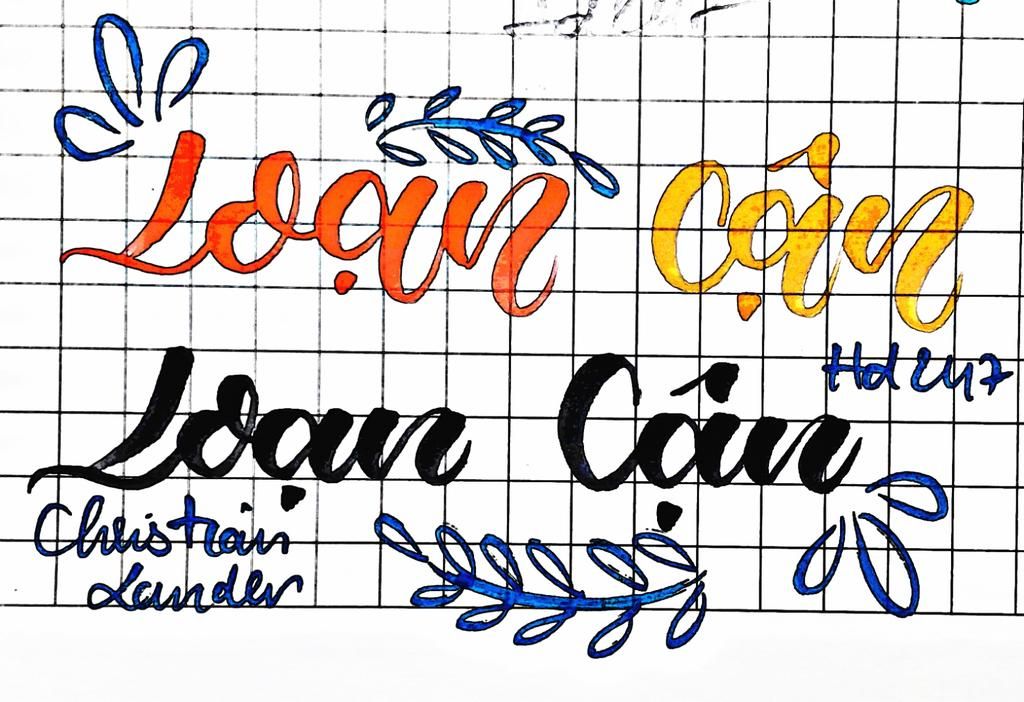 Loạn Cận
Hd 247
Loạn Cận
Christian
Lander